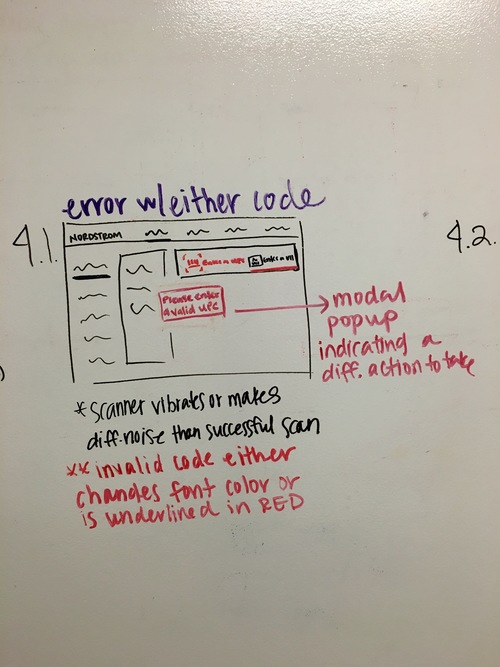 error w/either code
4.1.
4.2.
NORDSTROM
Enter a UPC
Please enter
a valid UPC
modal
popup
indicating a
diff. action to take
*scanner vibrates or makes
diff. noise than successful scan
** invalid code either
changes font color or
is underlined in RED